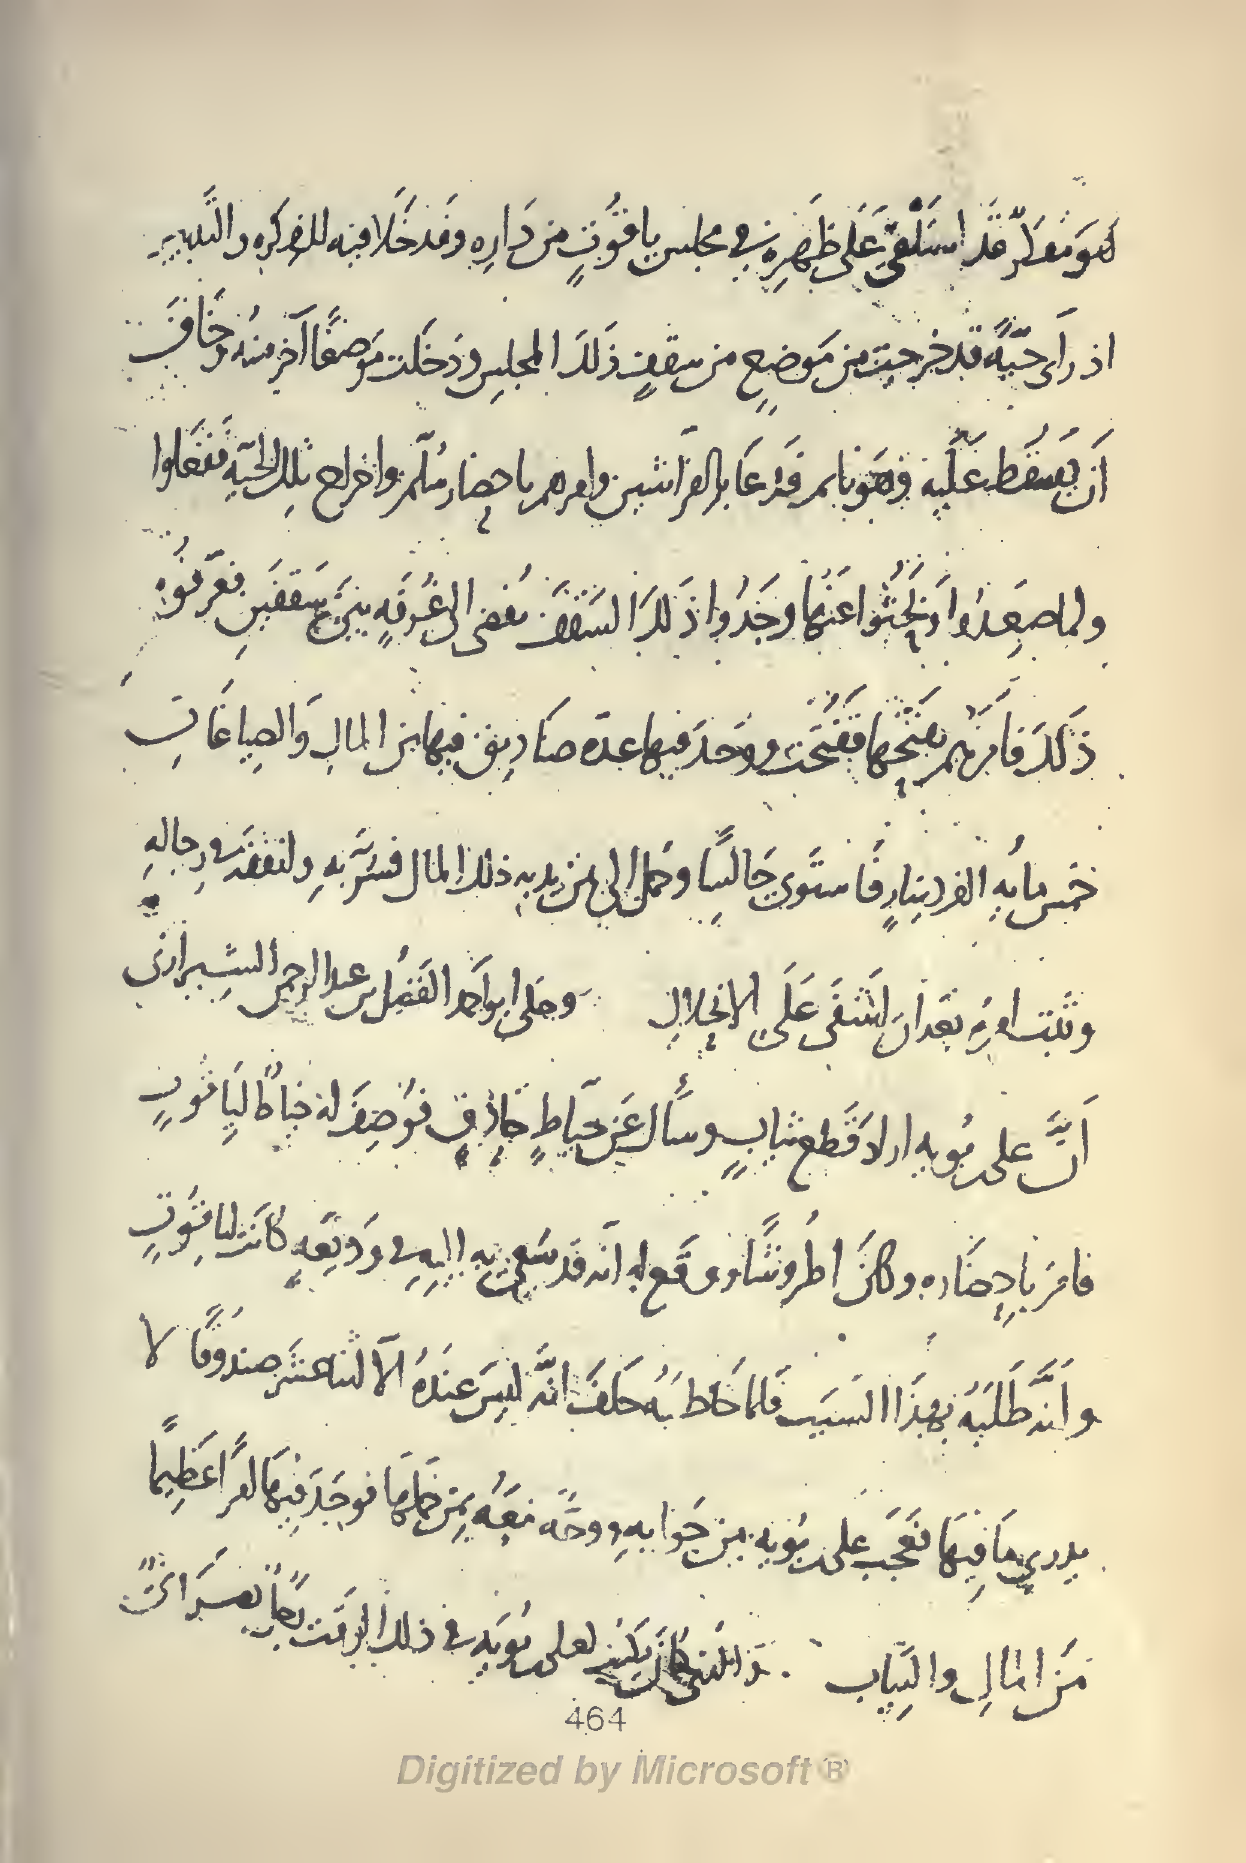 هو مفكر قد استلقى على ظهره في مجلس ياقوت من داره وقد خلا فيه للفكره والتدبير
اذ رأى حيّة قد خرجت من موضع من سقف ذلك المجلس ودخلت موضعًا آخر منه وخاف
ان يسقط عليه وهو نايم فدعا بالفراشين وامرهم باحضار سُلّم واخراج تلك الحيّة ففعلوا
ولما صعدوا وبحثوا عنها وجدوا ذلك السقف يفضى الى غُرفه بين سقفين فعرّفوه
ذلك فامرهم بفتحها ففتحت ووجد فيها عده صناديق فيها من المال والصياغات
خمس مايه الف دينار فاستوى جالسًا وحمل الى بين يديه ذلك المال فسرّ به وانفقه في رجاله
وثبت امره بعد ان اشفى على الانحلال وحكى ابو احمد الفضل بن عبد الرحمن الشيرازى
أنّ على بويه اراد قطع ثياب وسأل عن خيّاط حاذق فوُصف له خياط لياقوت
فامر باحضاره وكان اطروشًا ووقع له انّه قد سُعى به اليه في وديعه كانت لياقوت
وانّه طلبه بهذا السبب فلما خاطبه حلف انّه ليس عنده الّا اثنا عشر صندوقًا لا
يدري ما فيها فعجب على بن بويه من جوابه ووجّه معه من حملها فوجد فيها امرًا عظيمًا
من المال والثياب وكان يكتب لعلى بن بويه في ذلك الوقت نصرانى
464
Digitized by Microsoft ®